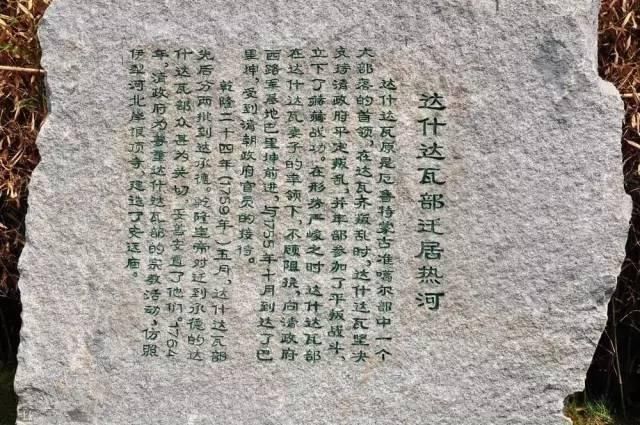 达什达瓦部迁居热河
达什达瓦原是厄鲁特蒙古准噶尔部中一个
大部落的首领，在达瓦齐叛乱时，达什达瓦坚决
支持清政府平定叛乱，并率部参加了平叛战斗，
立下了赫赫战功。在形势严峻之时，达什达瓦部
在达什达瓦妻子的率领下，不顾阻挠，向清政府
西路军地巴里坤前进，与1755年十月到达了巴
里坤，受到清朝政府官员的接待。
乾隆二十四年（1759年）五月，达什达瓦部
先后分两批到达承德。乾隆皇帝对迁到承德的达
什达瓦部众甚为关切，妥善安置了他们。1764
年，清政府为尊重达什达瓦部的宗教活动，仿照
伊犁河北岸银顶寺，建造了安远庙。